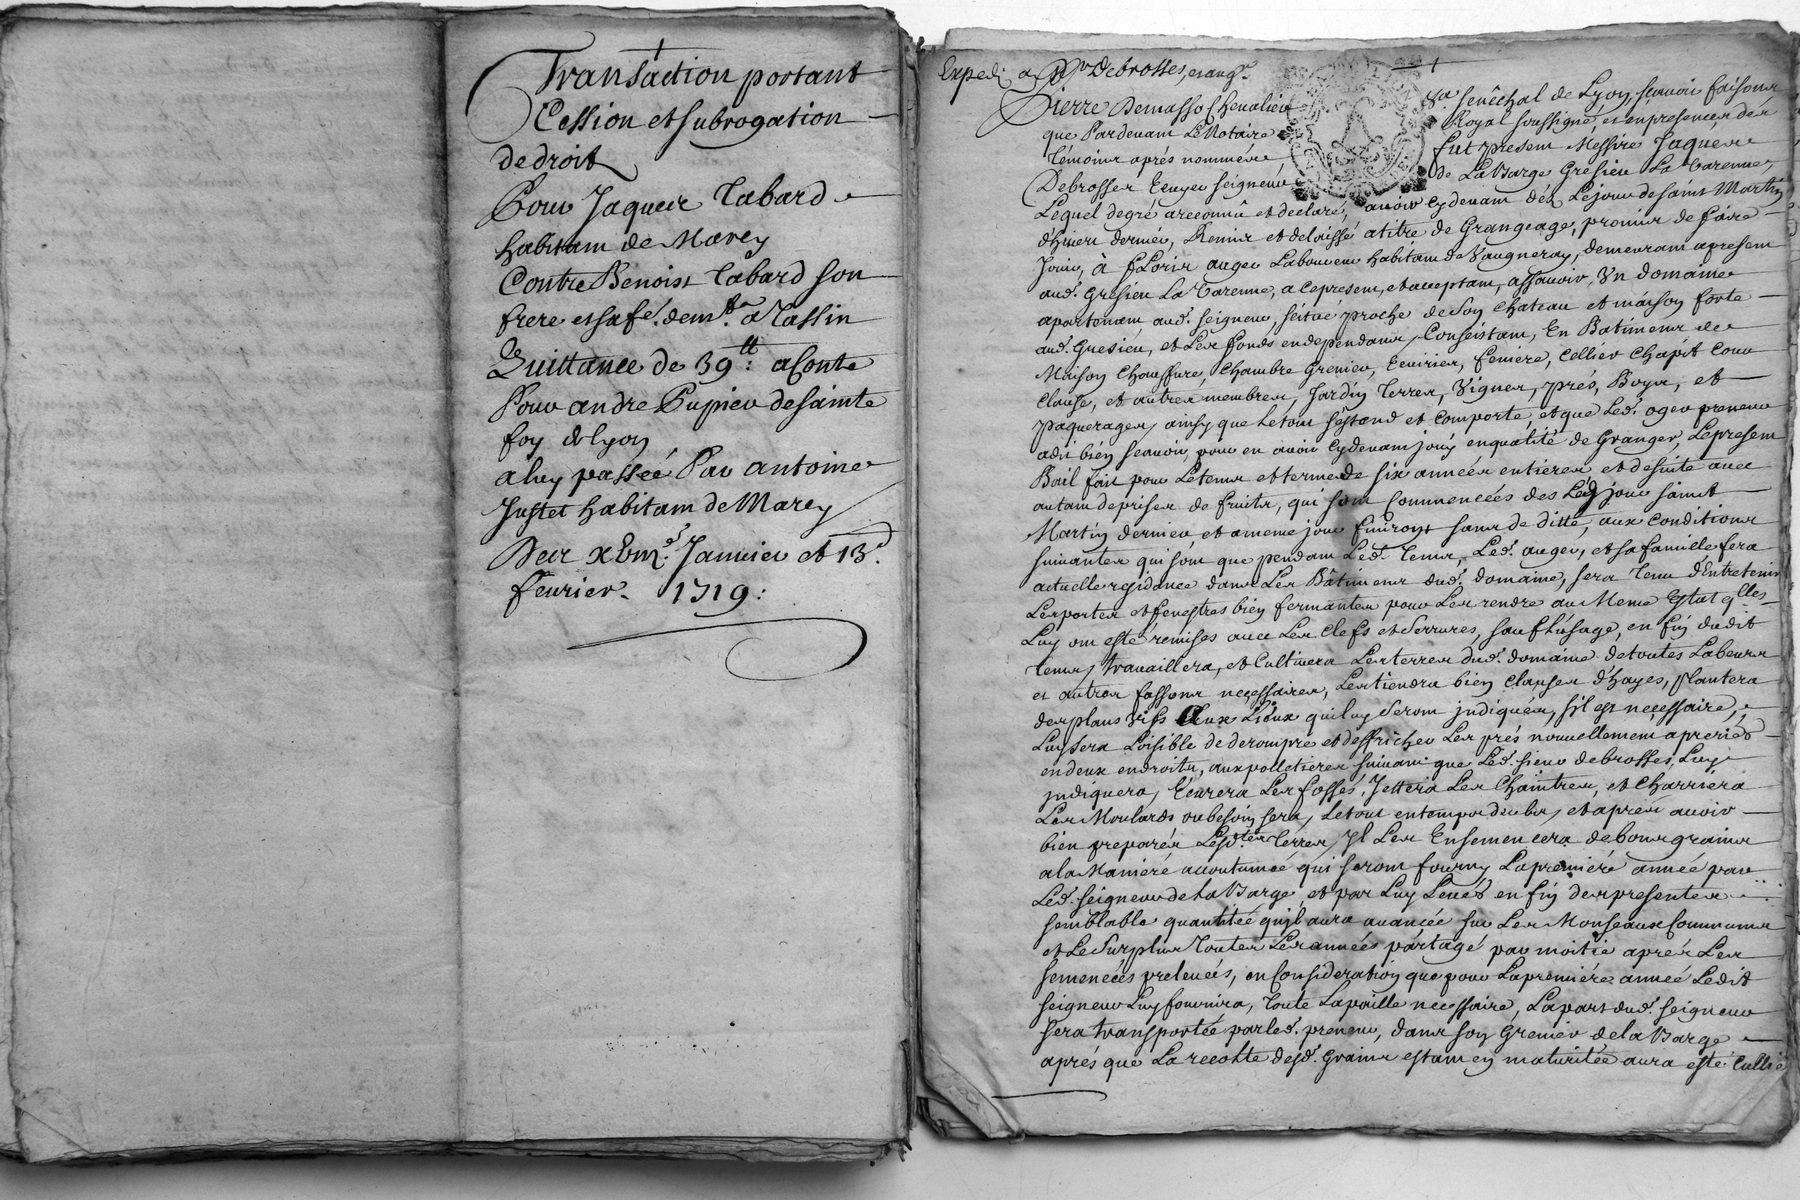 Transaction portant
Cession et subrogation
de droit
Pour Jaques Tabard
habitant de Marcy
Contre Benoist Tabard son
frere et sa fe. demt. a Tassin
Quittance de 39tt: a Conte
Pour andre Pupieu de sainte
foy de Lyon
a luy passée Par antoine
Justet habitant de Marcy
Des xxvme. Januier et 13e.
feurier. 1719:
Expedi. a Mr Debrosses, et aug.
Pierre Demasso Chevalier Sénéchal de Lyon, sçauoir faisons
que Pardeuant Le Notaire Royal soussigné, et en presence des
Témoins aprés nommés fut present Messire Jaques
Debrosses Ecuyer seigneur de La Barge Gresieu La Varenne,
Lequel de gré a reconnû et declaré, auoir Cydeuant dés Le jour de saint Martin
d'hiuer dernier, Remis et delaissé a titre de Grangeage, promis de faire
Jouir, à fLoris auger Laboureur habitant de Vaugneray, demeurant apresent
aud. Gresieu La Varenne, a ce present, et acceptant, assauoir, Un domaine
apartenant aud. seigneur, scitué proche de son Château et maison forte
aud. Gresieu, et Les fonds en dependans, Consistant, En Batimens de
Maison Chauffure, Chambre Grenier, Ecuries, feniere, Cellier Chapit Cour
Clause, et autres membres, Jardin Terres, Vignes, prés, Boys, et
paquerages, ainsy que Le tout s'estend et Comporte, et que Led. oger preneur
a dit bien sçauoir, pour en auoir Cydeuant joüy en qualité de Granger, Le present
Bail fait pour Le tems et terme de six années entieres et de suite auec
autant de prises de fruits, qui sont Commencées des Led. jour saint
Martin dernier et a meme jour finiront sans de ditte, aux Conditions
suiuantes qui sont que pendant Led. Tems, Led. auger, et sa famille fera
actuelle residence dans Les Bâtimens dud. domaine, sera Tenu d'Entretenir
Les portes et fenestres bien fermantes pour Les rendre au Meme Estat qlles
Luy ont esté remises auec Les Clefs et Serrures, sauf L'usage, en fin dudit
tems, travaillera, et Cultiuera Les terres dud. domaine de toutes Labeurs
et autres fassons necessaires, Les tiendra bien Clauses d'hayes, plantera
des plans vifs Aux Lieux qui luy Seront jndiqués, s'il est necessaire,
Luy sera Loisible de derompre et deffricher Les prés nouuellement apreries
en deux endroits, aux polletieres suiuant que Led. sieur debrosses Luy
jndiquera, Ecurera Les fossés, Jettera Les Chaintres, et Charriera
Les Moulards ou besoin sera, Le tout en temps deubs, et aprés auoir
bien preparés Lesd. Terres, Jl Les Ensemencera de bons grains
a la Maniéré accoutumée qui seront fourny La premiere année par
Led. seigneur de La Barge, et par Luy Leués en fin des presentes
semblable quantité qu'jl aura auancée sur Les Monseaux Communs
et Le Surplus Toutes Les années partagé par moitié aprés Les
semences preleuées, en Consideration que pour La premiere année Ledit
seigneur Luy fournira, toute La paille necessaire, La part dud. seigneur
sera transportée par led. preneur, dans son Grenier de la Barge
aprés que La recolte desd. Grains estant en maturitée aura esté Cullie